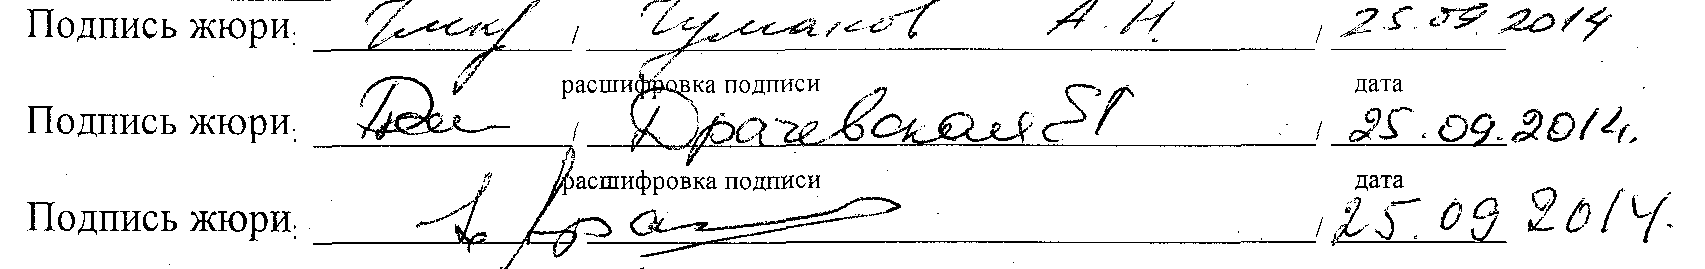 Подпись жюри: / Чумаков А.Н. / 25.09.2014
расшифровка подписи дата
Подпись жюри: / Драчевская / 25.09.2014.
расшифровка подписи дата
Подпись жюри: / 25.09 2014.